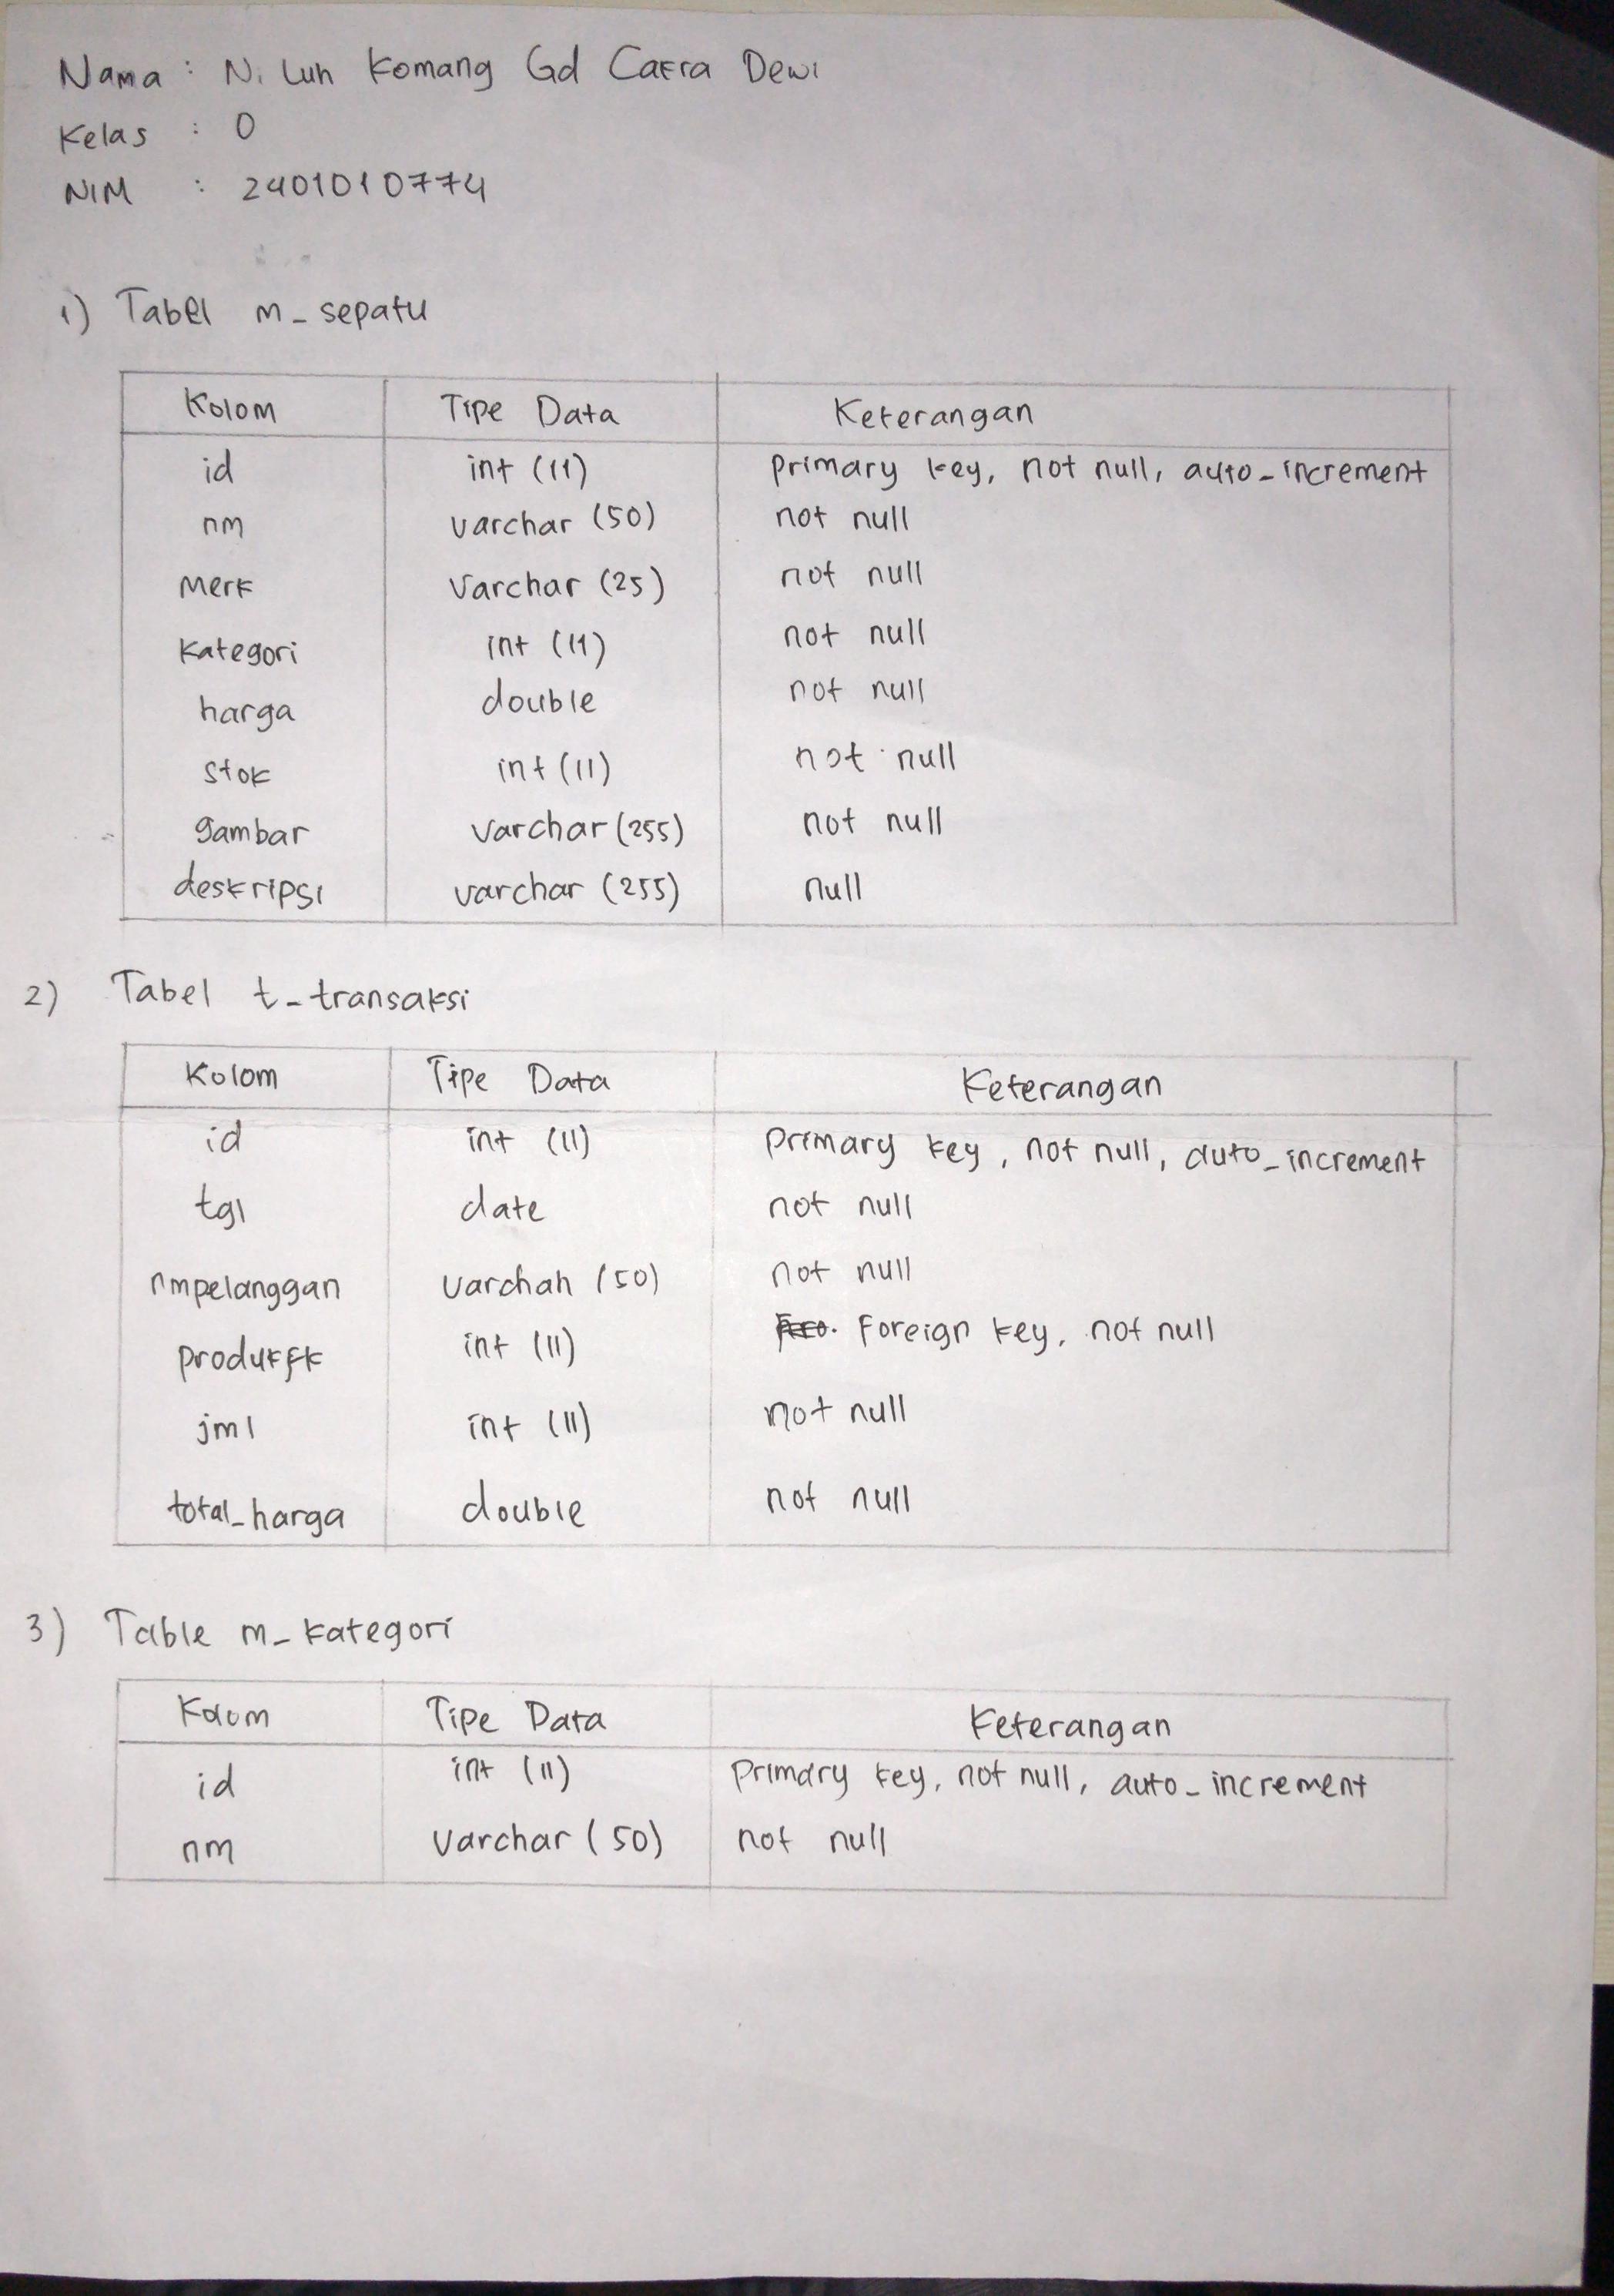 Nama : Ni Luh Komang Gd Cakra Dewi
Kelas : O
NIM : 2401010774
1) Tabel m_sepatu
Kolom Tipe Data Keterangan
id int (11) primary key, not null, auto_increment
nm varchar (50) not null
merk varchar (25) not null
kategori int (11) not null
harga double not null
stok int (11) not null
gambar varchar (255) not null
deskripsi varchar (255) null
2) Tabel t_transaksi
Kolom Tipe Data Keterangan
id int (11) primary key, not null, auto_increment
tgl date not null
nmpelanggan varchah (50) not null
produkfk int (11) Foreign key, not null
jml int (11) not null
total_harga double not null
3) Table m_kategori
Kolom Tipe Data Keterangan
id int (11) primary key, not null, auto_increment
nm varchar (50) not null